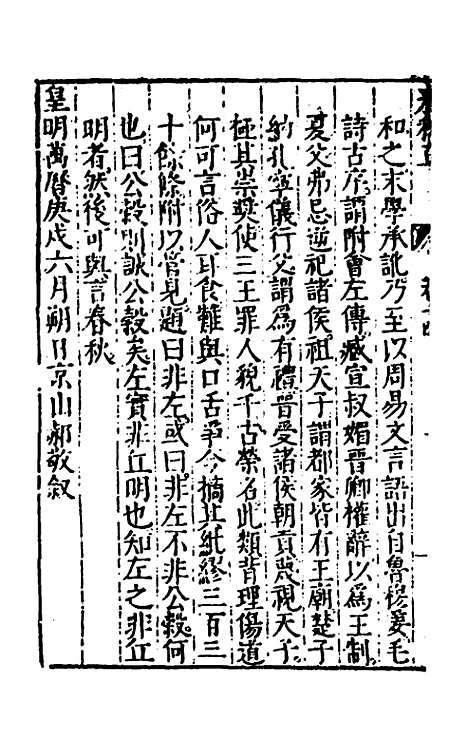 和之末學承訛乃至以周易文言語出自魯穆姜毛
詩古序謂附會左傳臧宣叔媚晉卿權辭以為王制
夏父弗忌逆祀諸侯祖天子謂都家皆有王廟楚子
納孔寧儀行父謂為有禮晉受諸侯朝貢蔑視天子
極其崇奬使三王罪人稅千古榮名此類背理傷道
何可言俗人耳食難與口舌爭今摘其紕繆三百三
十餘條附以管見題曰非左或曰非左不非公穀何
也曰公穀則誠公穀矣左實非丘明也知左之非丘
明者然後可與言春秋
皇明萬曆庚戌六月朔日京山郝敬叙